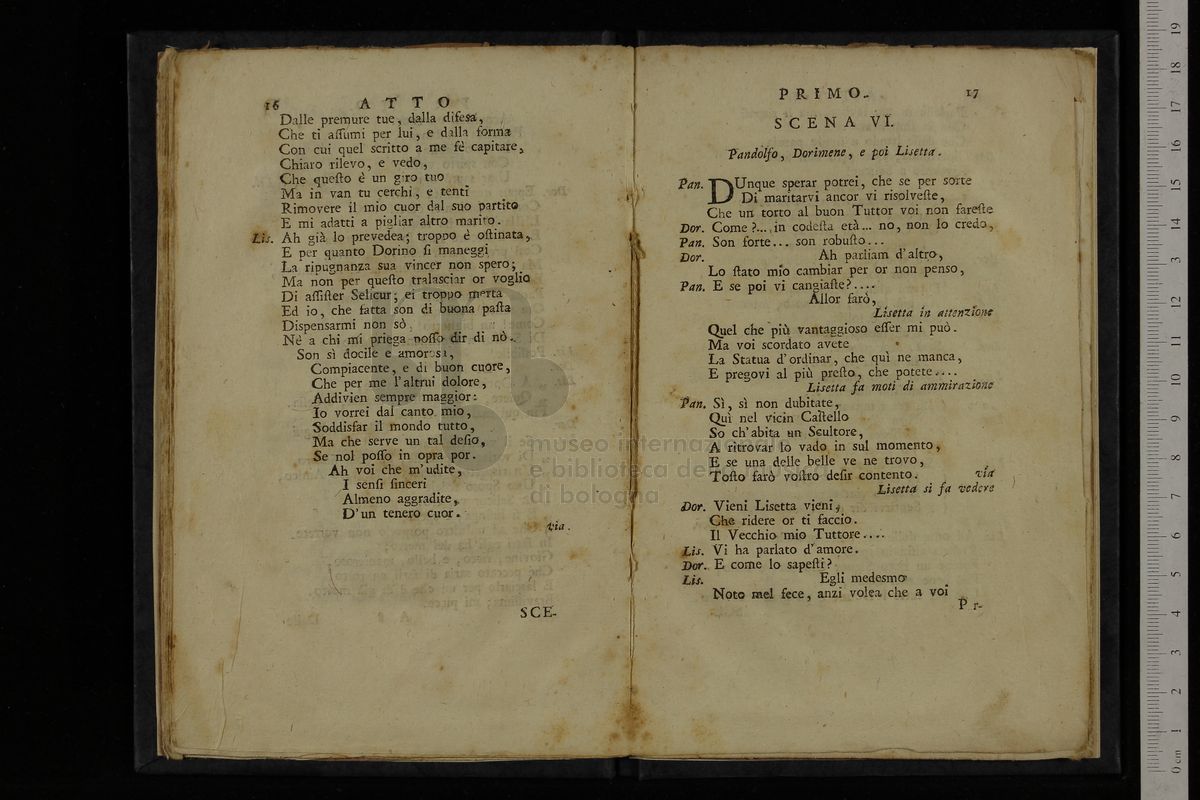 16 ATTO
Dalle premure tue, dalla difesa,
Che ti aſſumi per lui, e dalla forma
Con cui quel scritto a me fè capitare,
Chiaro rilevo, e vedo,
Che queſto è un giro tuo
Ma in van tu cerchi, e tenti
Rimovere il mio cuor dal suo partito
E mi adatti a pigliar altro marito.
Lis. Ah già lo prevedea; troppo è oſtinata,
E per quanto Dorino ſi maneggi
La ripugnanza sua vincer non spero;
Ma non per queſto tralasciar or voglio
Di aſſiſter Selicur; ei troppo merta
Ed io, che fatta son di buona paſta
Dispensarmi non sò,
Nè a chi mi priega poſſo dir di nò.
Son sì docile e amorosa,
Compiacente, e di buon cuore,
Che per me l'altrui dolore,
Addivien sempre maggior:
Io vorrei dal canto mio,
Soddisfar il mondo tutto,
Ma che serve un tal deſio,
Se nol poſſo in opra por.
Ah voi che m'udite,
I senſi ſinceri
Almeno aggradite,
D'un tenero cuor.
via.
SCE-
PRIMO. 17
SCENA VI.
Pandolfo, Dorimene, e poi Lisetta.
Pan. DUnque sperar potrei, che se per sorte
Di maritarvi ancor vi risolveſte,
Che un torto al buon Tuttor voi non fareſte
Dor. Come?... in codeſta età... no, non lo credo,
Pan. Son forte... son robuſto...
Dor. Ah parliam d'altro,
Lo ſtato mio cambiar per or non penso,
Pan. E se poi vi cangiaſte?....
Allor farò,
Lisetta in attenzione
Quel che più vantaggioso eſſer mi può.
Ma voi scordato avete
La Statua d'ordinar, che quì ne manca,
E pregovi al più preſto, che potete....
Lisetta fa moti di ammirazione
Pan. Sì, sì non dubitate,
Quì nel vicin Caſtello
So ch'abita un Scultore,
A ritrovar lo vado in sul momento,
E se una delle belle ve ne trovo,
Toſto farò voſtro deſir contento. via
Lisetta si fa vedere
Dor. Vieni Lisetta vieni,
Che ridere or ti faccio.
Il Vecchio mio Tuttore....
Lis. Vi ha parlato d'amore.
Dor. E come lo sapeſti?
Lis. Egli medesmo
Noto mel fece, anzi volea che a voi
P r-
museo internazionale
e biblioteca della
di bologna